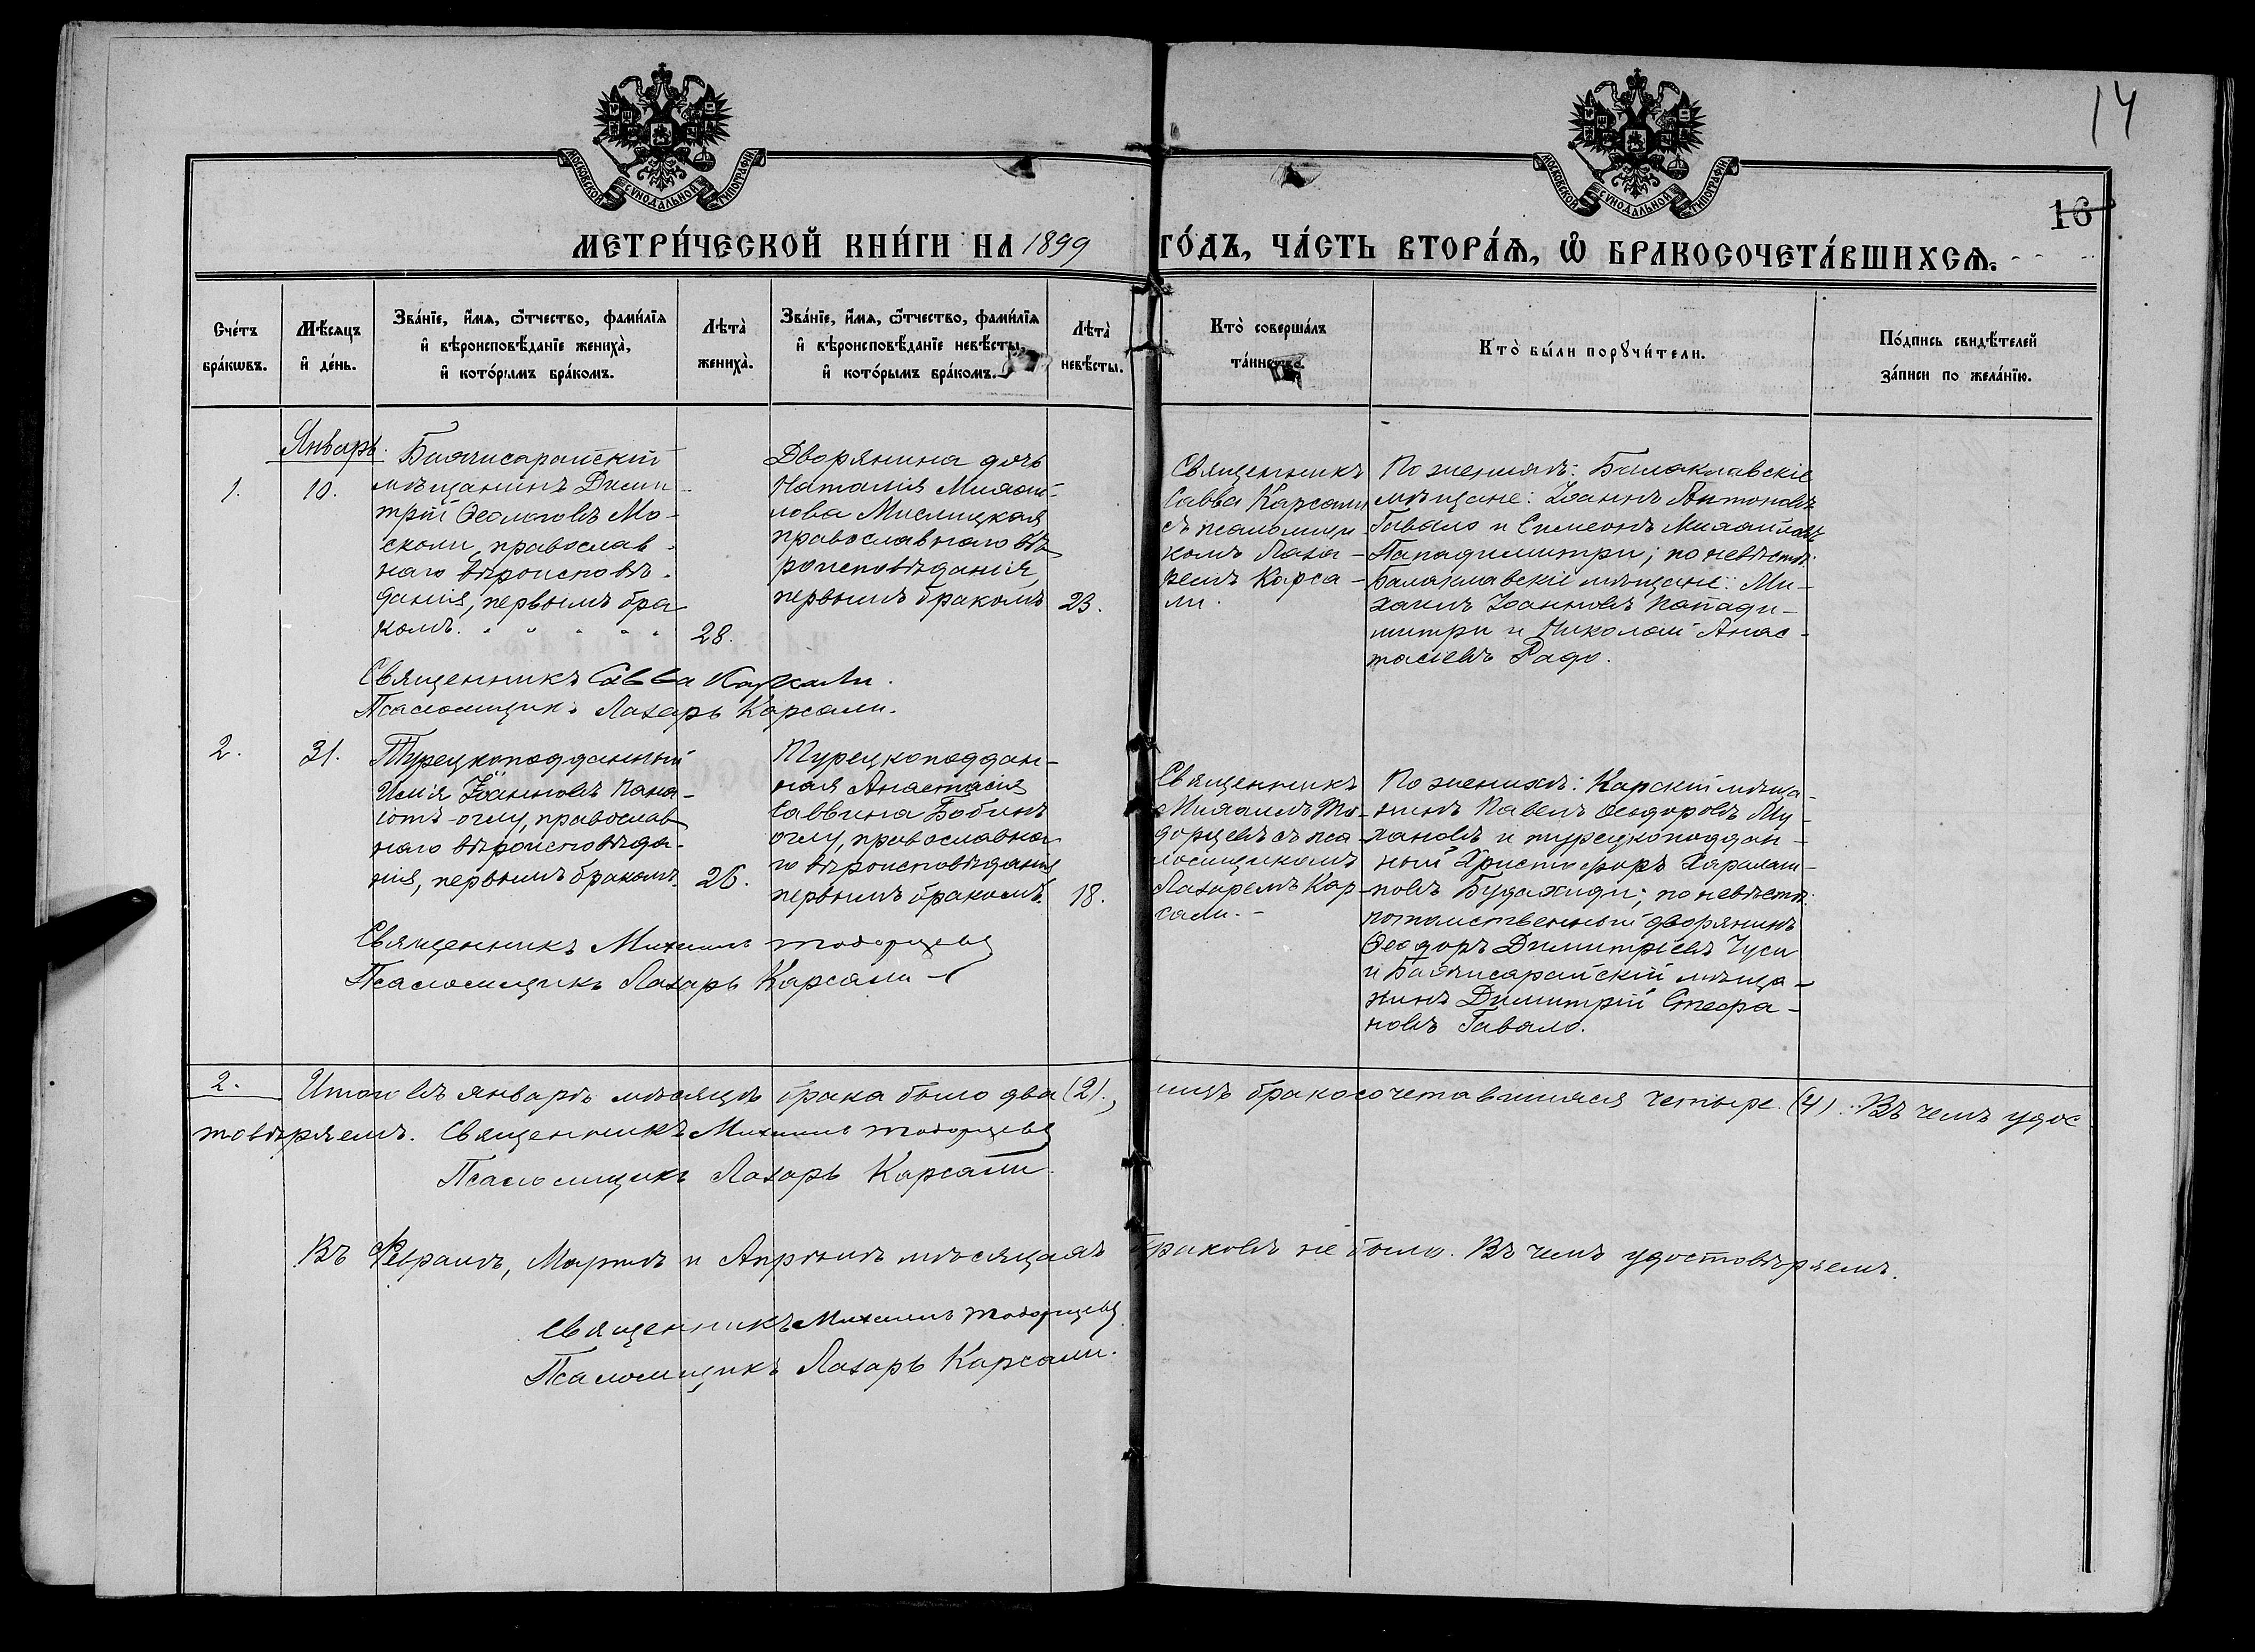 14
16
МОСКОВСКОЙ СѴНОДАЛЬНОЙ ТИПОГРАФІИ
МОСКОВСКОЙ СѴНОДАЛЬНОЙ ТИПОГРАФІИ
МЕТРИ́ЧЕСКОЙ КНИ́ГИ НА 1899 ГО́ДЪ, ЧА́СТЬ ВТОРА́Ѧ, Ѽ БРАКОСОЧЕТА́ВШИХСѦ.
Счéтъ
брáкѡвъ.
Мѣ́сяцъ
и҆ дéнь.
Звáнїе, и҆́мѧ, ѻ҆́тчество, фами́лїѧ
и҆ вѣроисповѣ́данїе женихà,
и҆ кото́рымъ брáкомъ.
Лѣ́та̀
женихà.
Звáнїе, и҆́мѧ, ѻ҆́тчество, фами́лїѧ
и҆ вѣроисповѣ́данїе невѣ́сты,
и҆ кото́рымъ брáкомъ.
Лѣ́та̀
невѣ́сты.
Ктò совершáлъ
тáинство.
Ктò бы́ли порꙋчи́тели.
Пóдпись свидѣ́телей
зáписи по желáнїю.
Январь.
1.
10.
Бахчисарайскій
мѣщанинъ Дими
трій Ѳеологовъ Мо-
сколи, православ
наго вѣроисповѣ-
данія, первымъ бра
комъ.
28.
Дворянина дочь
Наталія Михаи-
лова Мислицкая
православнаго вѣ
роисповѣданія,
первымъ бракомъ
23.
Священникъ
Савва Карсали
съ псаломщи
комъ Лаза-
ремъ Карса-
ли.
По женихѣ: Балаклавскіе
мѣщане: Іоаннъ Антоновъ
Гавало и Симеонъ Михаиловъ
Пападимитри; по невѣстѣ:
Балаклавскіе мѣщане: Ми-
хаилъ Іоанновъ Папади-
митри и Николай Анас-
тасіевъ Радо.
Священникъ Савва Карсали.
Псаломщикъ Лазарь Карсали.
2.
31.
Турецкоподданный
Илія Іоанновъ Пана-
іотъ-оглу, православ
наго вѣроисповѣда-
нія, первымъ бракомъ
26.
Турецкоподдан-
ная Анастасія
Саввина Бобинъ
оглу, православна
го вѣроисповѣданія
первымъ бракомъ.
18.
Священникъ
Михаилъ То-
дорцевъ съ пса-
ломщикомъ
Лазаремъ Кар-
сали.-
По женихѣ: Карскій мѣща-
нинъ Павелъ Ѳеодоровъ Му-
хановъ и турецкоподдан-
ный Христофоръ Харалам-
повъ Будажиди; по невѣстѣ:
потомственный дворянинъ
Ѳеодоръ Димитріевъ Чуси
и Бахчисарайскій мѣща-
нинъ Димитрій Стефа-
новъ Гавало.
Священникъ Михаилъ Тодорцевъ
Псаломщикъ Лазарь Карсали
2.
Итого въ январѣ мѣсяцѣ брака было два (2), лицъ бракосочетавшихся четыре (4). Въ чемъ удос
товѣряемъ. Священникъ Михаилъ Тодорцевъ
Псаломщикъ Лазарь Карсали
Въ Февралѣ, Мартѣ и Апрѣлѣ мѣсяцахъ браковъ не было. Въ чемъ удостовѣряемъ.
Священникъ Михаилъ Тодорцевъ
Псаломщикъ Лазарь Карсали.